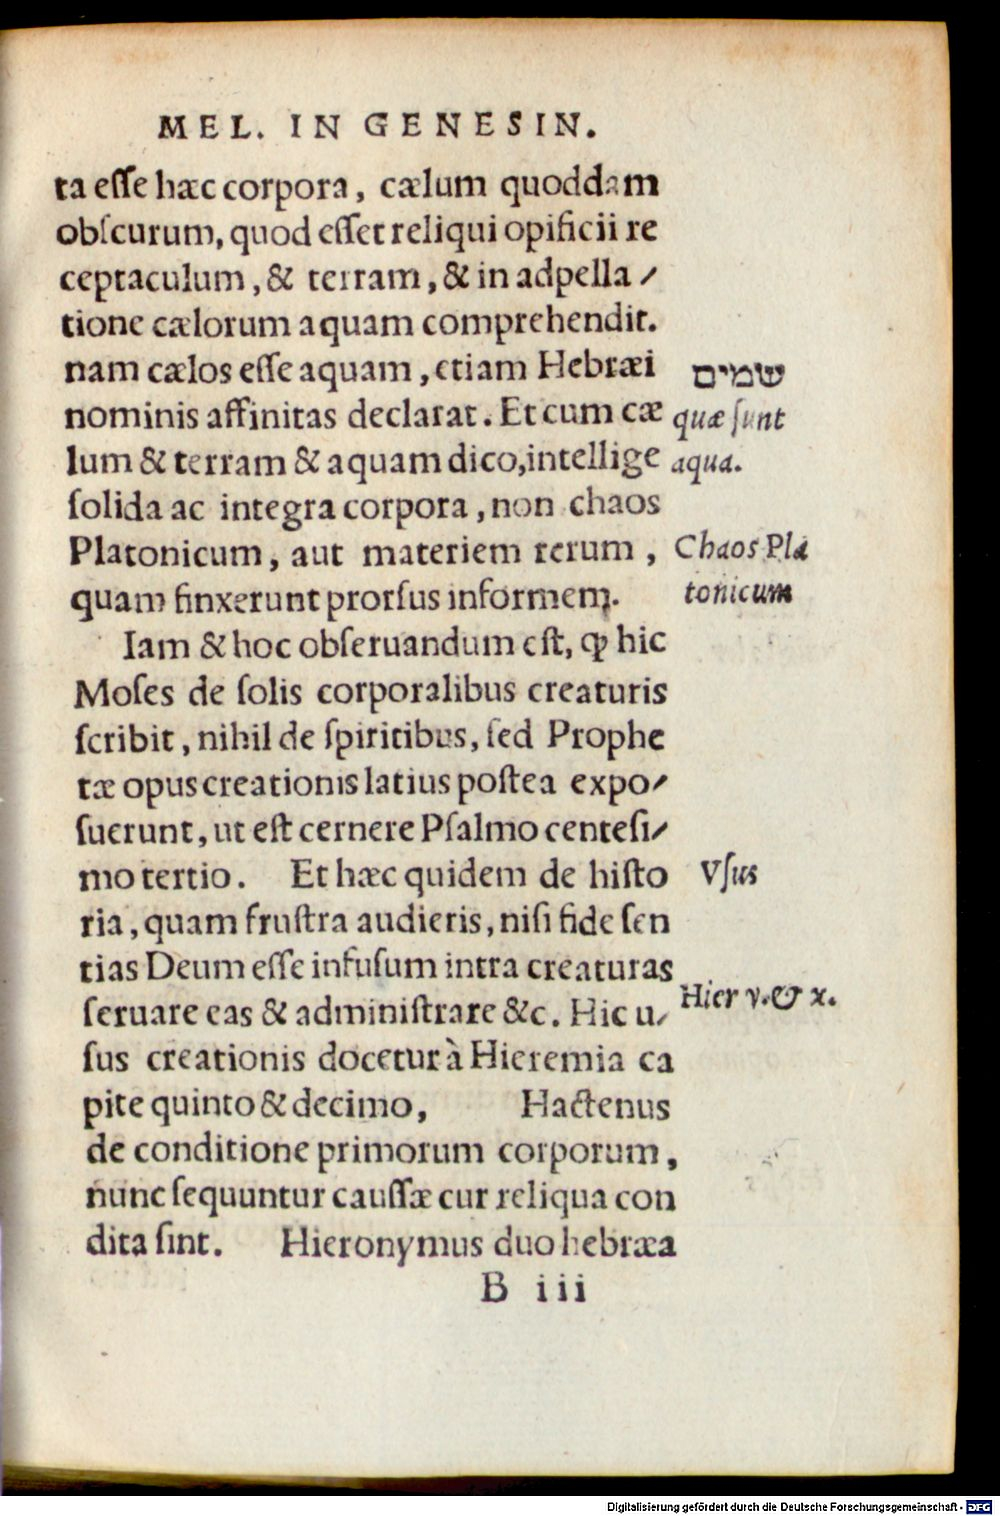 MEL. IN GENESIN.
ta eſſe hæc corpora, cælum quoddam
obſcurum, quod eſſet reliqui opificii re
ceptaculum, & terram, & in adpella⸗
tione cælorum aquam comprehendit.
nam cælos eſſe aquam, etiam Hebræi
nominis affinitas declarat. Et cum cæ
lum & terram & aquam dico, intellige
ſolida ac integra corpora, non chaos
Platonicum, aut materiem rerum,
quam finxerunt prorſus informem.
Iam & hoc obſeruandum eſt, ꝙ hic
Moſes de ſolis corporalibus creaturis
ſcribit, nihil de ſpiritibus, ſed Prophe
tæ opus creationis latius poſtea expo⸗
ſuerunt, ut eſt cernere Pſalmo centeſi⸗
mo tertio. Et hæc quidem de hiſto
ria, quam fruſtra audieris, niſi fide ſen
tias Deum eſſe infuſum intra creaturas
ſeruare eas & adminiſtrare &c. Hic u⸗
ſus creationis docetur à Hieremia ca
pite quinto & decimo, Hactenus
de conditione primorum corporum,
nunc ſequuntur cauſſæ cur reliqua con
dita ſint. Hieronymus duo hebræa
B iii
שמים
quæ ſunt
aqua.
Chaos Pla
tonicum
Vſus
Hier v. & x.
Digitalisierung gefördert durch die Deutsche Forschungsgemeinschaft - DFG